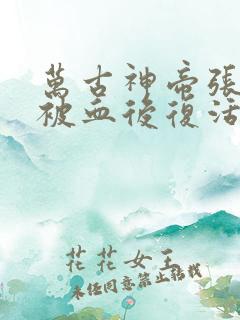 萬古神帝張
被血後復活
花花女王
未经同意禁止转载